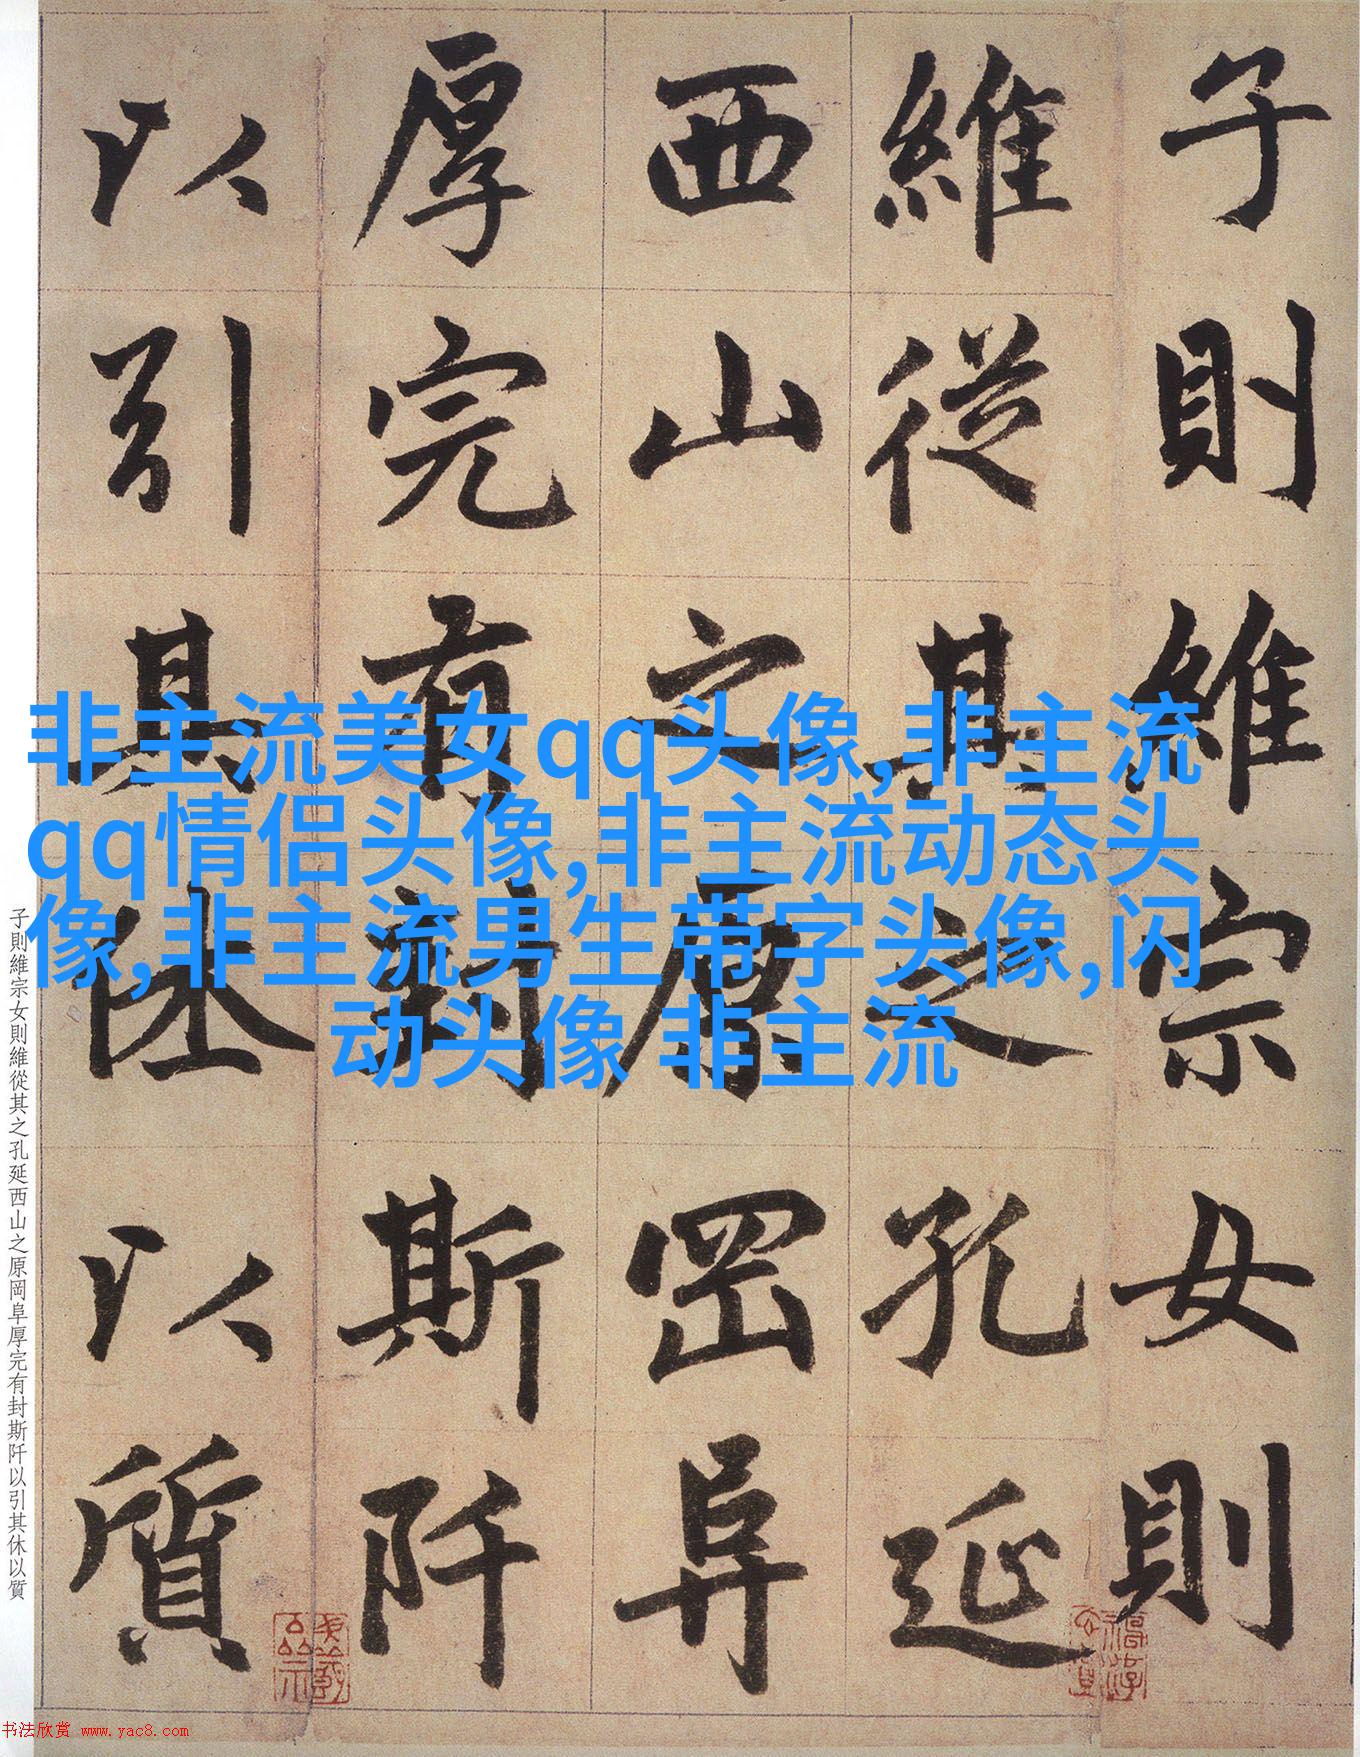 子則維宗女則
維從其之孔延
西山之原岡阜
厚完有封斯阡
以引其休以質
非主流美女qq头像,非主流
qq情侣头像,非主流动态头
像,非主流男生带字头像,闪
动头像 非主流
子則維宗女則維從其之孔延西山之原岡阜厚完有封斯阡以引其休以質
书法欣赏 www.yac8.com